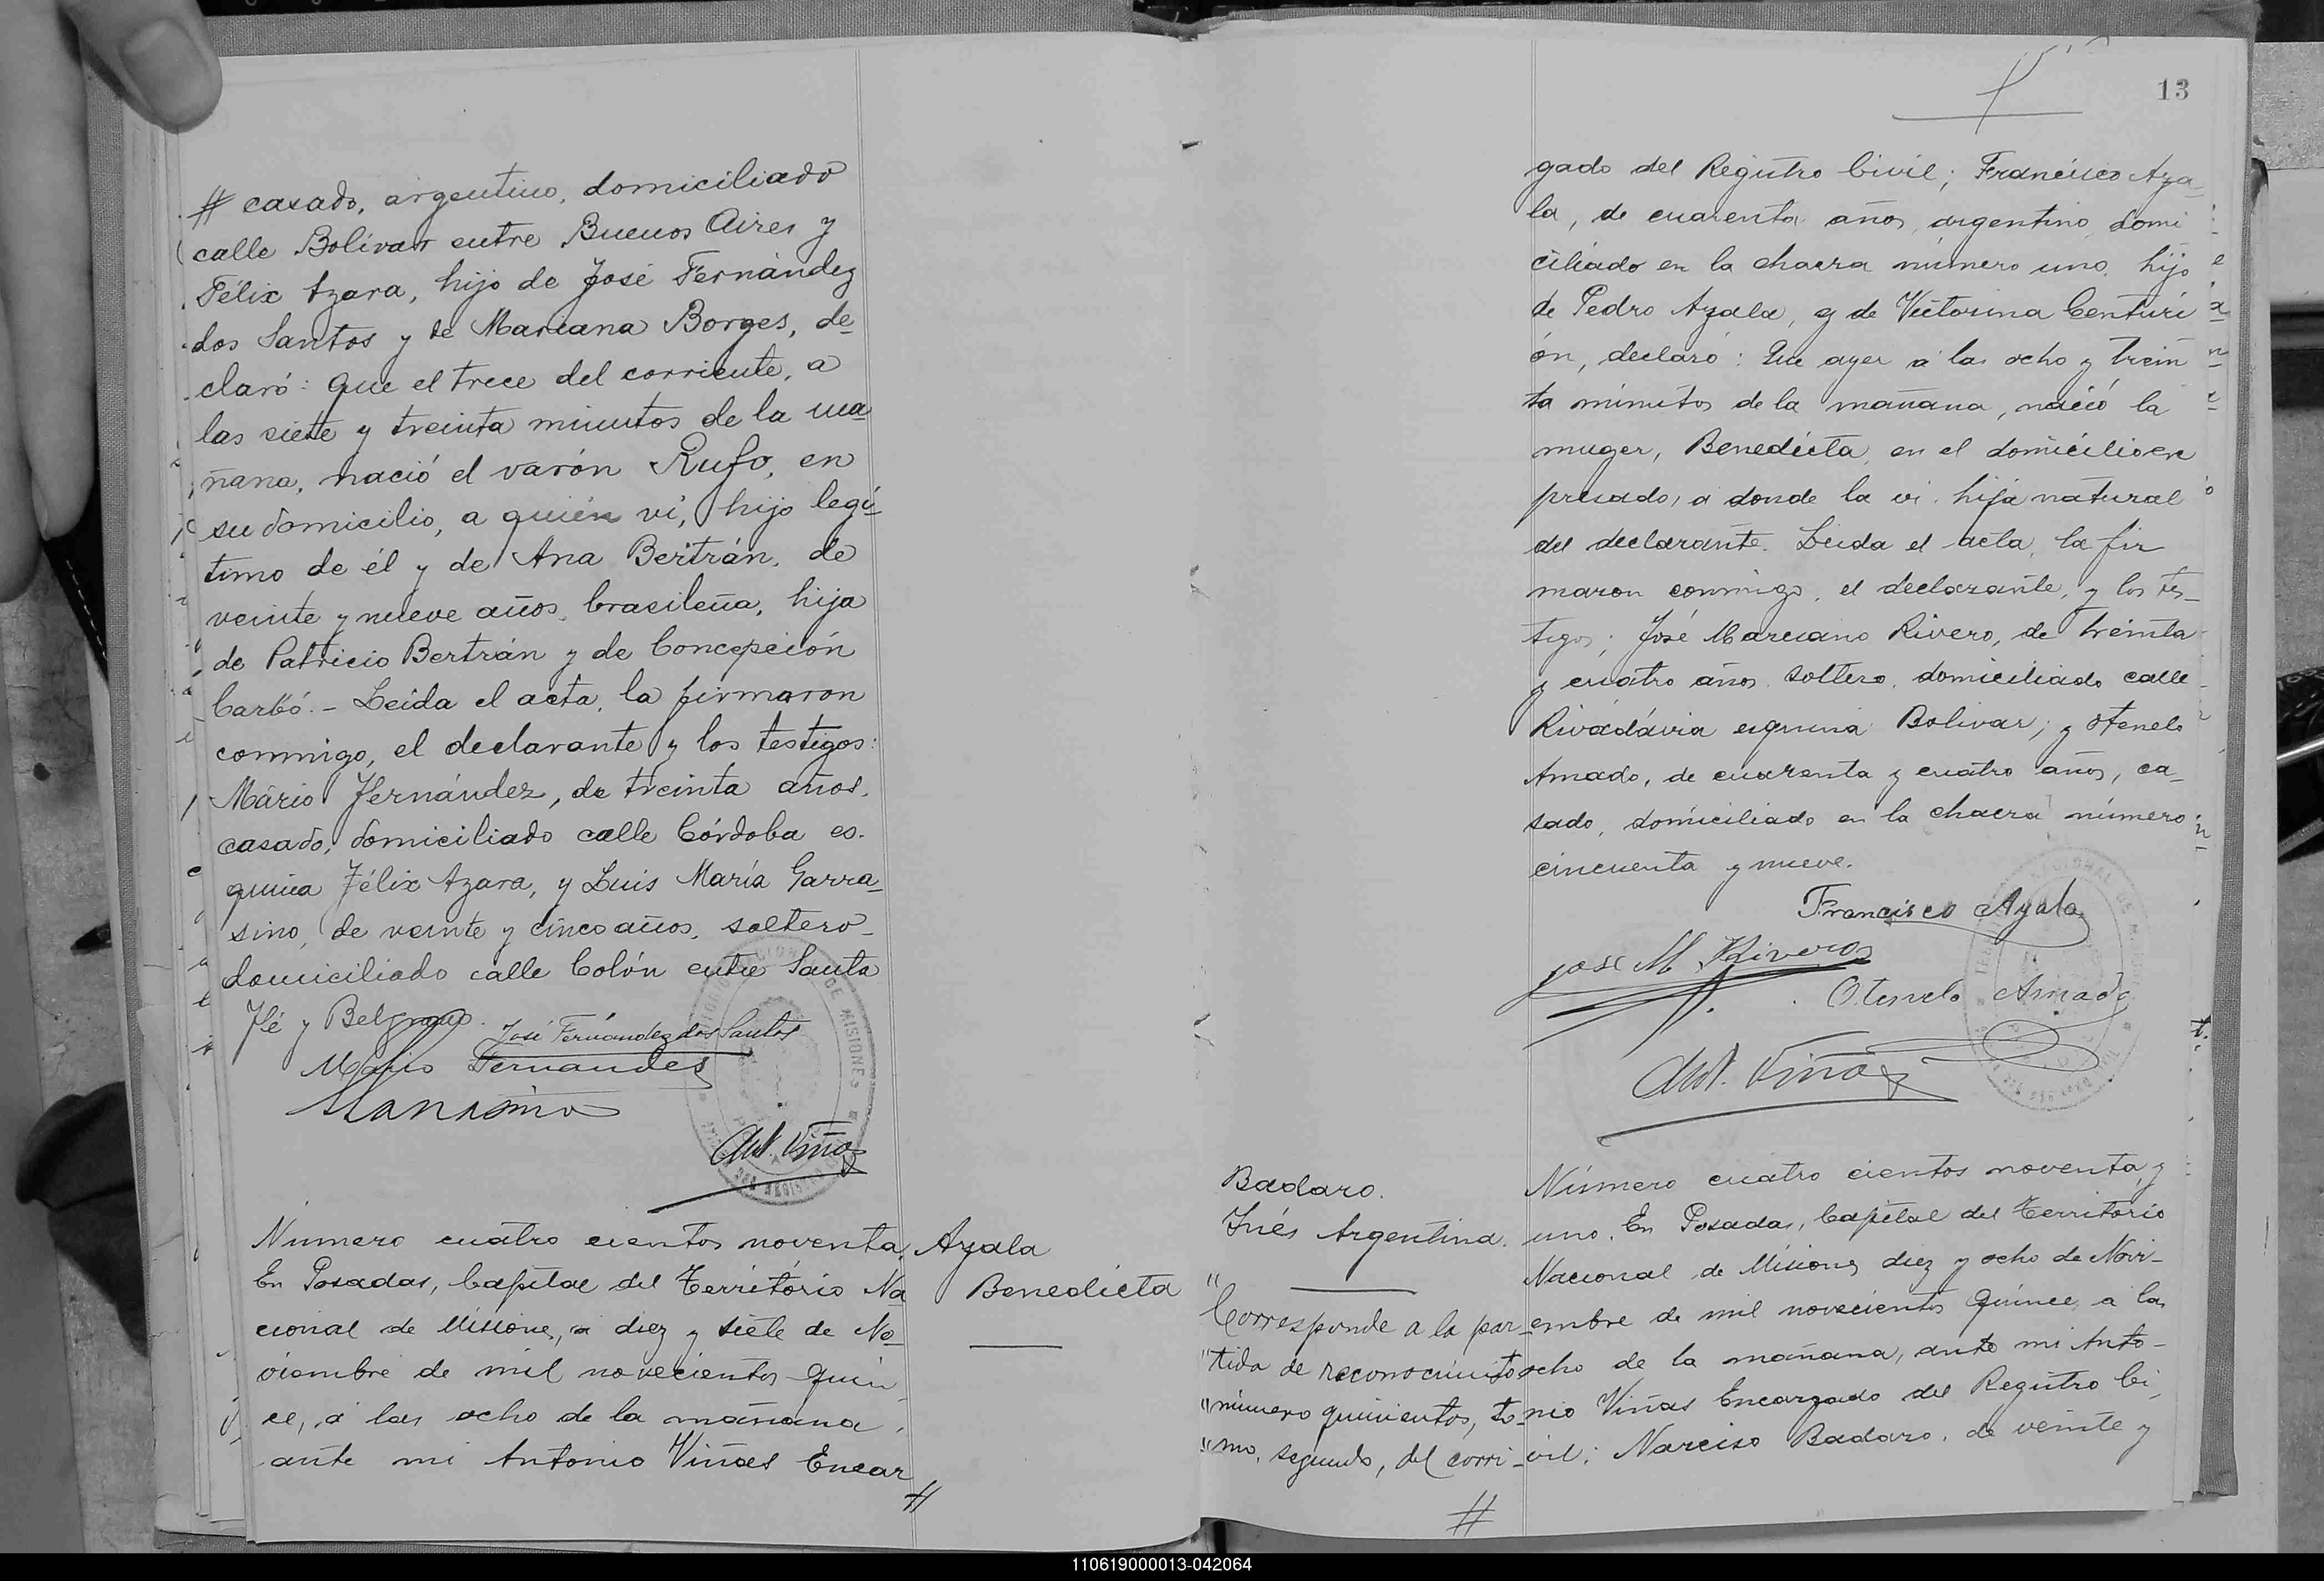 # casado, argentino, domiciliado
calle Bolívar entre Buenos Aires y
Félix Azara, hijo de José Fernández
dos Santos y de Mariana Borges, de-
claró: que el trece del corriente, a
las siete y treinta minutos de la ma-
ñana, nació el varón Rufo, en
su domicilio, a quién ví, hijo legí-
timo de él y de Ana Bertrán, de
veinte y nueve años, brasileña, hija
de Patricio Bertrán y de Concepción
Carbó.- Leida el acta, la firmaron
conmigo, el declarante y los testigos:
Mário Fernández, de treinta años,
casado, domiciliado calle Córdoba es-
quina Félix Azara, y Luis María Garra-
sino, de veinte y cinco años, soltero
domiciliado calle Colón entre Santa
Fé y Belgrano.
José Fernández dos Santos
Mario Fernandes
Ant. Viñas
Número cuatro cientos noventa.
En Posadas, Capital del Território Na-
cional de Misiones, a diez y siete de No-
viembre de mil novecientos quin
ce, a las ocho de la mañana,
ante mi Antonio Viñas Encar
#
Ayala
Benedicta
13
gado del Registro Civil; Francisco Aya-
la, de cuarenta años, argentino, domi
ciliado en la chacra número uno, hijo
de Pedro Ayala, y de Victorina Centuri
ón, declaró: Que ayer a las ocho y trein
ta minutos de la mañana, nació la
muger, Benedicta, en el domicilio ex
presado, a donde la vi. hija natural
del declarante. Leida el acta, la fir
maron conmigo, el declarante, y los tes-
tigos; José Marciano Rivero, de treinta
y cuatro años, soltero, domiciliado calle
Rivadávia esquina Bolivar; y Otenelo
Amado, de cuarenta y cuatro años, ca-
sado, domiciliado en la chacra número
cincuenta y nueve.
Francisco Ayala
José M. Riveros
Otenelo Amado
Ant. Viñas
Badaro.
Inés Argentina.
"Corresponde a la par-
"tida de reconocimito
"número quinientos, to-
"mo, segundo, del corri-
#
Número cuatro cientos noventa y
uno. En Posadas, Capital del Territorio
Nacional de Misiones diez y ocho de Novi-
embre de mil novecientos quince, a las
ocho de la mañana, ante mi Anto-
nio Viñas Encargado del Registro Ci
vil; Narciso Badaro, de veinte y
110619000013-042064